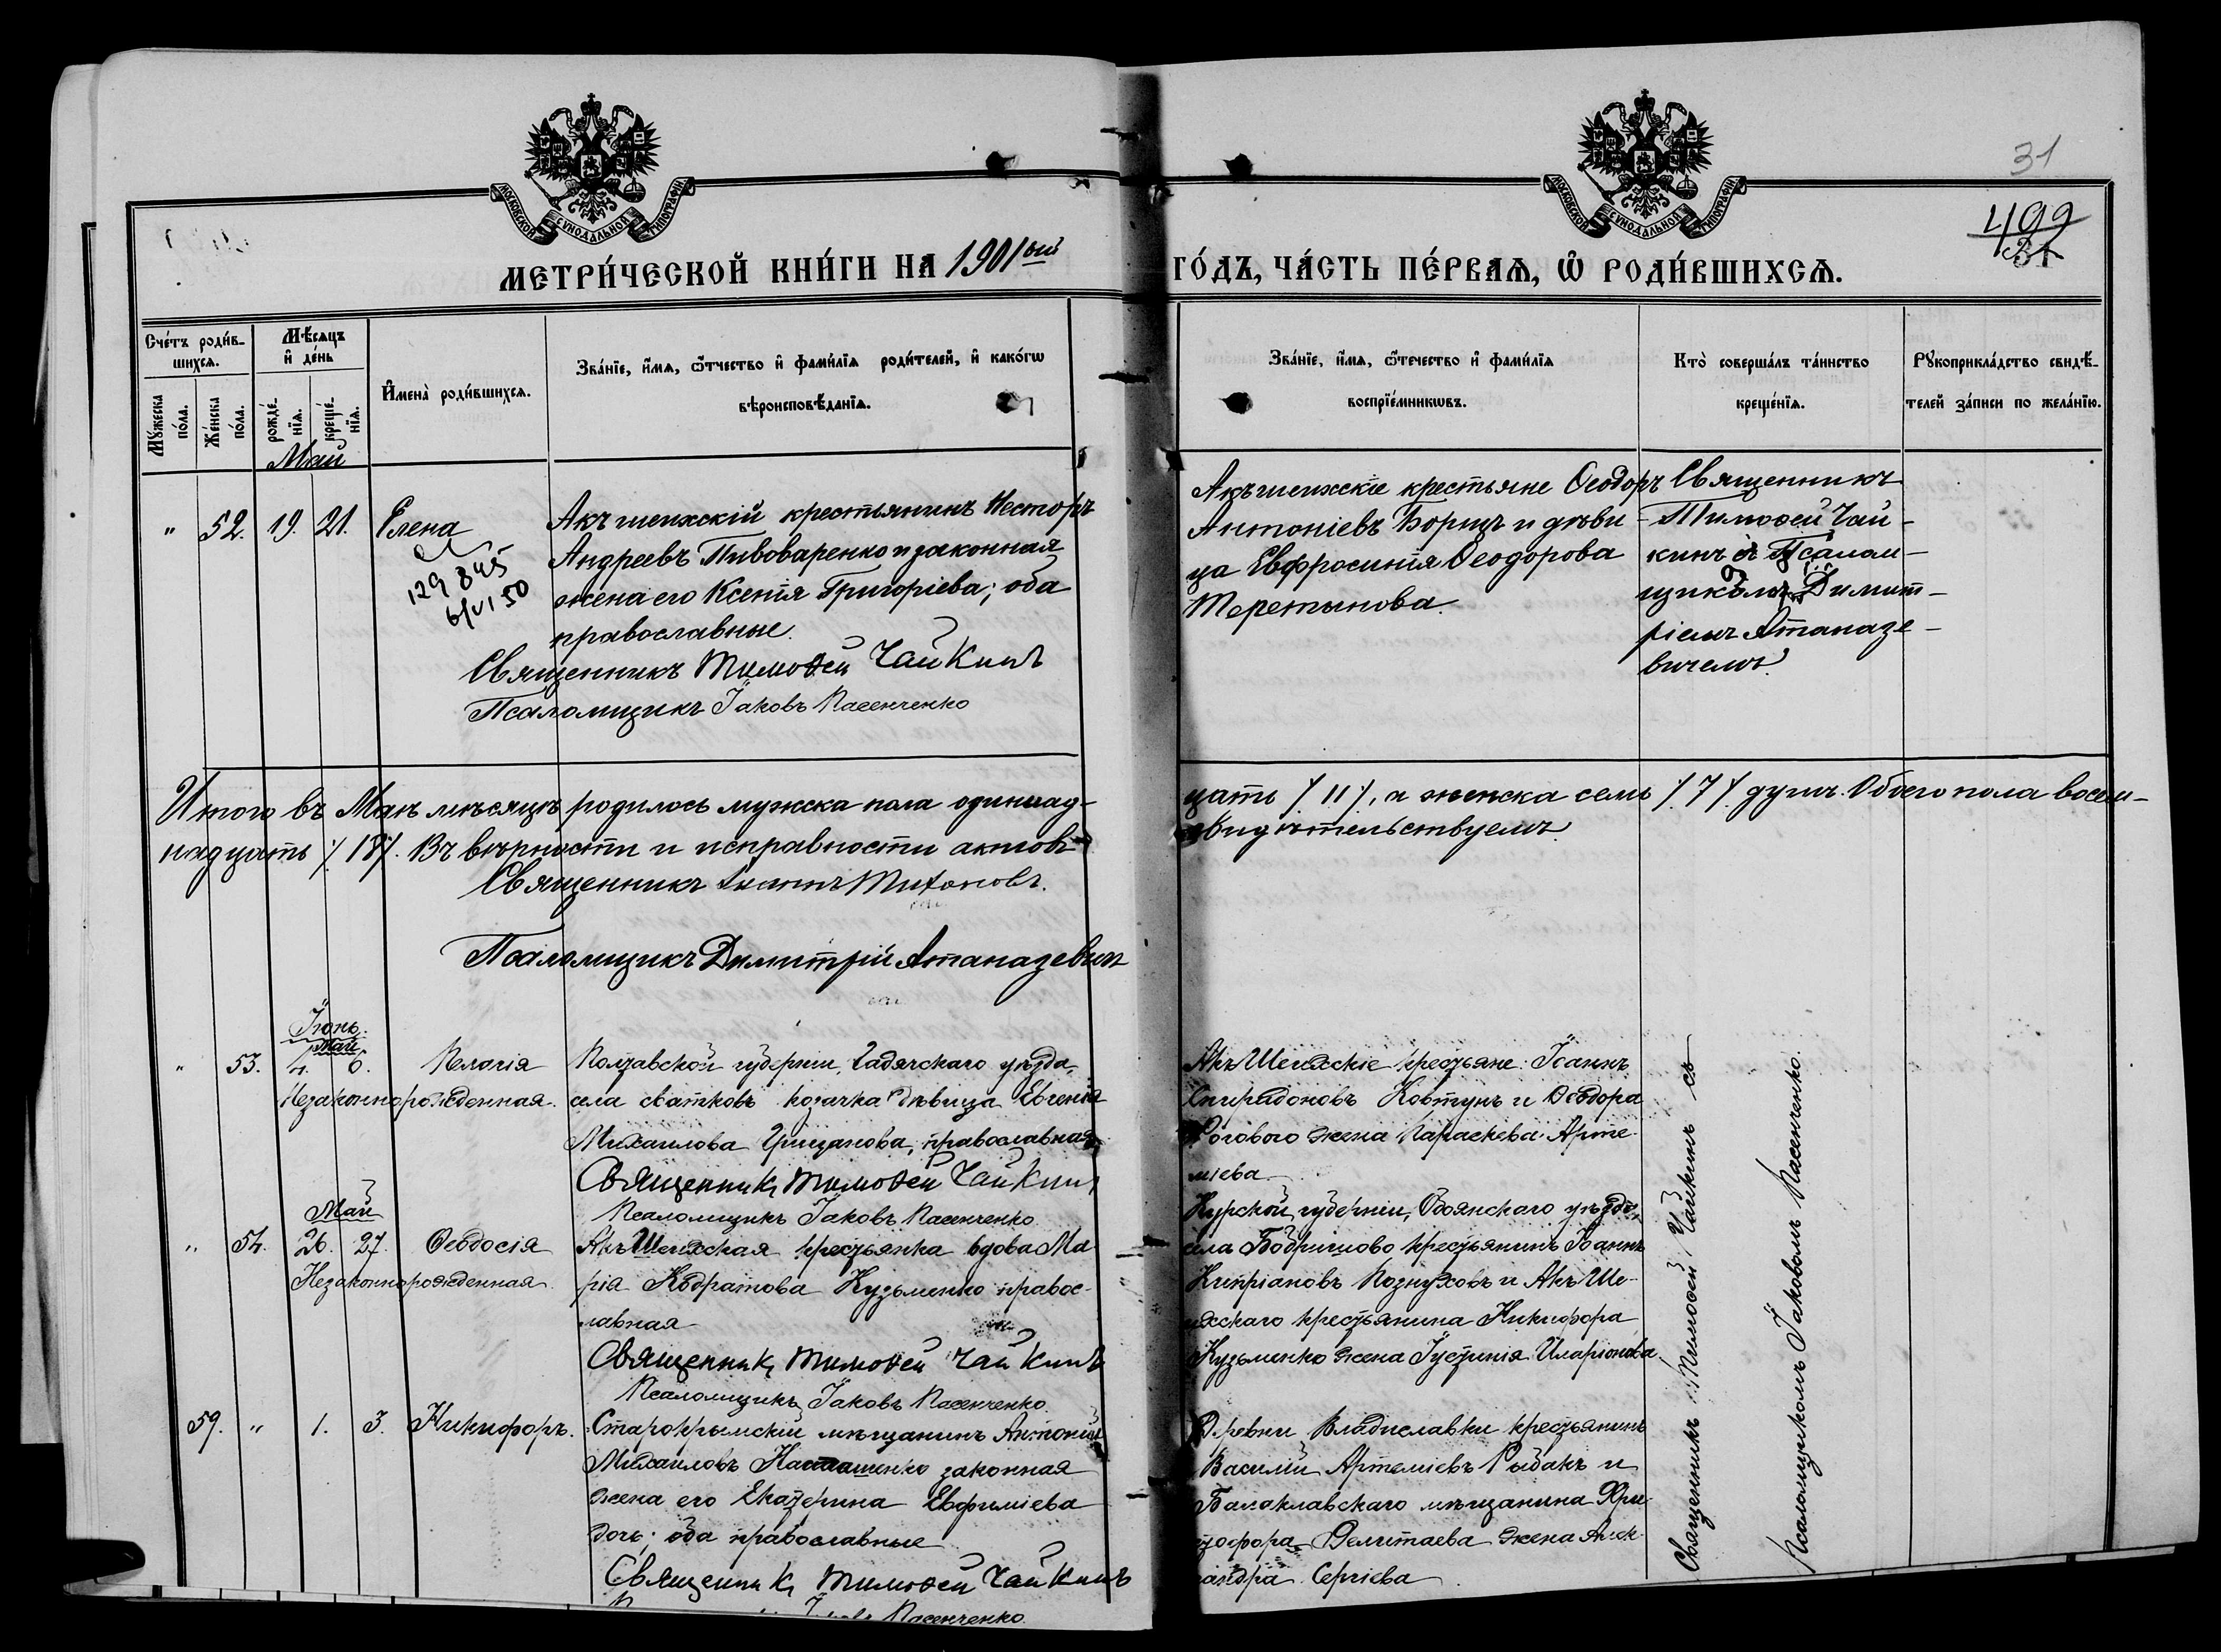 31
499
31
МОСКОВСКОЙ СѴНОДАЛЬНОЙ ТИПОГРАФІИ
МОСКОВСКОЙ СѴНОДАЛЬНОЙ ТИПОГРАФІИ
МЕТРИ́ЧЕСКОЙ КНИ́ГИ НА 1901ый ГО́ДЪ, ЧА́СТЬ ПЕ́РВАѦ, Ѡ҆ РОДИ́ВШИХСѦ.
Сче́тъ роди́в-
шихсѧ.
Мꙋ́жеска по́ла.
Же́нска по́ла.
Мѣ́сѧцъ
и҆ де́нь
рожде́-
нїѧ.
креще́-
нїѧ.
И҆мена̀ роди́вшихсѧ.
Зва́нїе, и҆́мѧ, ѻ҆́тчество и҆ фами́лїѧ роди́телей, и҆ како́гѡ
вѣроисповѣ́данїѧ.
Зва́нїе, и҆́мѧ, ѻ҆те́чество и҆ фами́лїѧ
воспрїе́мникѡвъ.
Кто̀ соверша́лъ та́инство
креще́нїѧ.
Рꙋкоприкла́дство свидѣ́-
телей за́писи по жела́нїю.
Май
" 52. 19. 21. Елена
129 845
6/VI 50
Акъ шеихскій крестьянинъ Несторъ
Андреевъ Пивоваренко и законная
жена его Ксенія Григоріева; оба
православные.
Священникъ Тимоѳей Чайкинъ
Псаломщикъ Іаковъ Пасенченко
Акъшеихскіе крестьяне Ѳеодоръ
Антоніевъ Борщъ и дѣви-
ца Евфросинія Ѳеодорова
Теретьянова.
Священникъ
Тимоѳей Чай-
кинъ съ Псалом-
щикомъ Димит-
ріемъ Атаназе-
вичемъ.
Итого въ Маѣ мѣсяцѣ родилось мужска пола одинад-
цать /11/, а женска семь /7/ душъ. Обоего пола восем-
надцать /18/. Въ вѣрности и исправности актовъ
свидѣтельствуемъ
Священникъ Іоаннъ Тихоновъ.
Псаломщикъ Димитрій Атаназевичъ
Іюнь.
Май
" 53. 4. 6. Пелагія
Незаконнорожденная.
Полтавской губерніи, Гадячскаго уѣзда,
села Сватковъ козачка дѣвица Евгенія
Михаилова Грицанова, православная
Священникъ Тимоѳей Чайкинъ
Псаломщикъ Іаковъ Пасенченко
Акъ Шеихскіе крестьяне: Іоаннъ
Спиридоновъ Ковтунъ и Ѳеодора
Рогового жена Параскева Арте-
міева
Май
" 54. 26. 27. Ѳеодосія
Незаконнорожденная
Акъ Шеихская крестьянка вдова Ма
рія Кодратова Кузьменко правос-
лавная
Священникъ Тимоѳей Чайкинъ
Псаломщикъ Іаковъ Пасенченко.
Курской губерніи, Обоянскаго уѣзда,
села Бобрышово крестьянинъ Іоаннъ
Кипріановъ Познуховъ и Акъ Ше-
ихскаго крестьянина Никифора
Кузьменко жена Іустинія Иларіонова
59. " 1. 3. Никифоръ.
Старокрымскій мѣщанинъ Антоній
Михаиловъ Наталенко законная
жена его Екатерина Евфиміева
дочь; оба православные
Священникъ Тимоѳей Чайкинъ
Іаковъ Пасенченко
Деревни Владиславки крестьянинъ
Василій Артеміевъ Рыбакъ и
Балаклавскаго мѣщанина Хри
тофора жена Алек-
сандра Сергіева
Священникъ Тимоѳей Чайкинъ съ
Псаломщикомъ Іаковомъ Пасенченко.